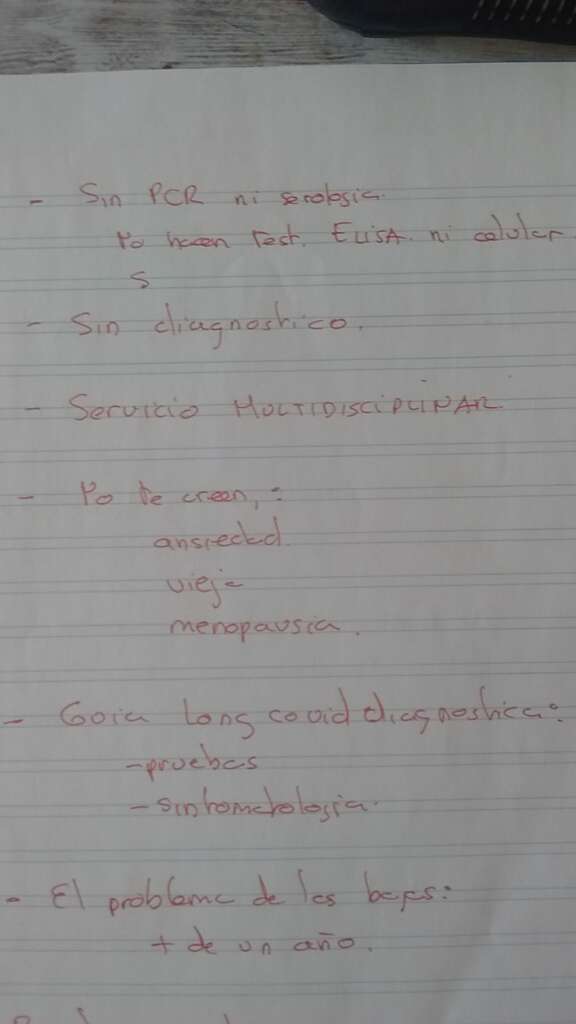 - Sin PCR ni serologia.
No hacen test. ELISA. ni celular
S
- Sin diagnostico.
- Servicio MULTIDISCIPLINAR
- No te creen, :
ansiedad.
vieja
menopausia.
- Guia long covid diagnostica:
- pruebas
- sintomatologia.
- El problema de las bajas:
+ de un año.